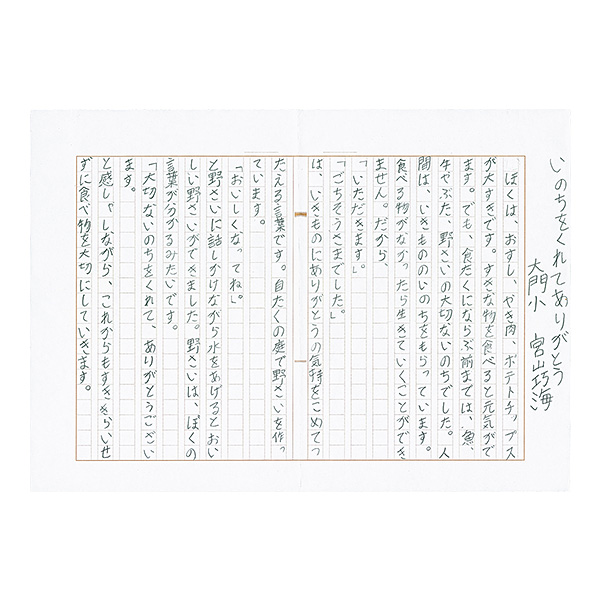 いのちをくれてありがとう
大門小 宮山巧海
ぼくは、おすし、やき肉、ポテトチップス
が大すきです。すきな物を食べると元気がで
ます。でも、食たくにならぶ前までは、魚、
牛やぶた、野さいの大切ないのちでした。人
間は、いきもののいのちをもらっています。
食べる物がなかったら生きていくことができ
ません。だから、
「いただきます。」
「ごちそうさまでした。」
は、いきものにありがとうの気持をこめてつ
たえる言葉です。自たくの庭で野さいを作っ
ています。
「おいしくなってね。」
と野さいに話しかけながら水をあげるとおい
しい野さいができました。野さいは、ぼくの
言葉が分かるみたいです。
「大切ないのちをくれて、ありがとうござい
ます。
と感しゃしながら、これからもすききらいせ
ずに食べ物を大切にしていきます。